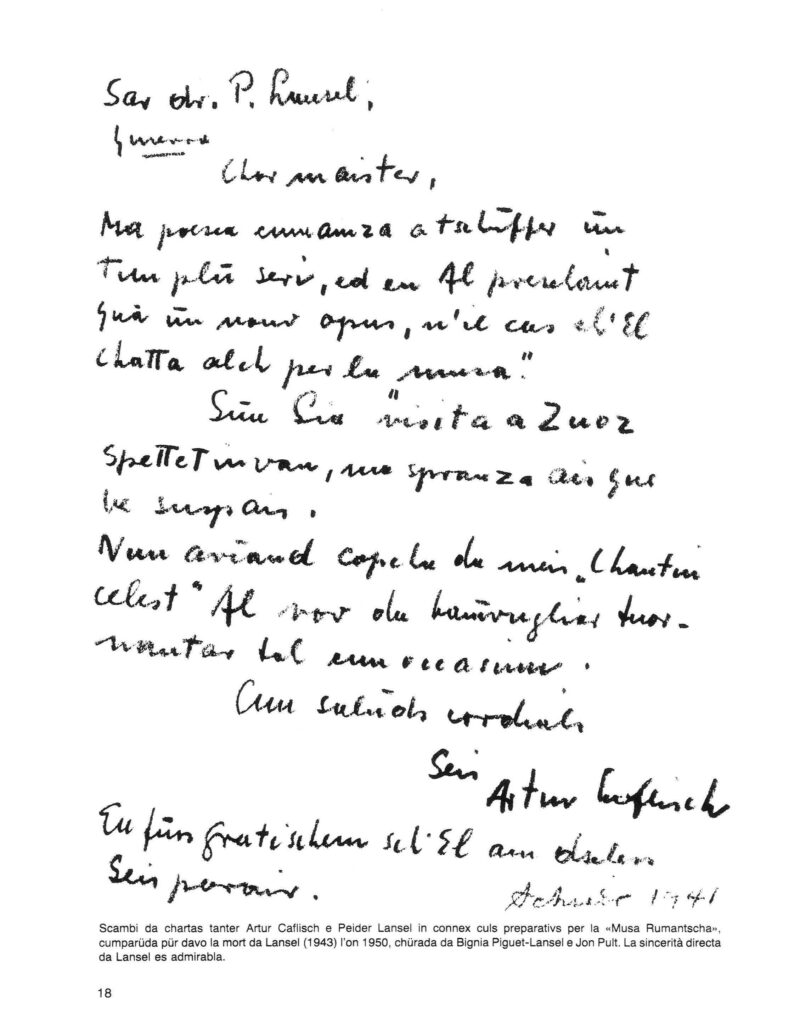 Sar dr. P. Lansel,
Chor maister,
Ma poesia cumanza a tschüffer ün
tun plü seri, ed eu Al preschaint
quà ün nouv opus, n'il cas ch'El
chatta alch per la "musa".
Sün Sia visita a Zuoz
spettet invan, ma spranza ais que
be suspais.
Nun aviand copcha da meis „Chantin
celest" Al vor da hanvugliar tuor-
nantar tal cun occasiun.
Cun salüds cordials
Seis
Artur Caflisch
Eu füss gratischem sch'El am dschess
Seis parair.
1941
Scambi da chartas tanter Artur Caflisch e Peider Lansel in connex culs preparativs per la «Musa Rumantscha»,
cumparüda pür davo la mort da Lansel (1943) l'on 1950, chürada da Bignia Piguet-Lansel e Jon Pult. La sincerità directa
da Lansel es admirabla.
18